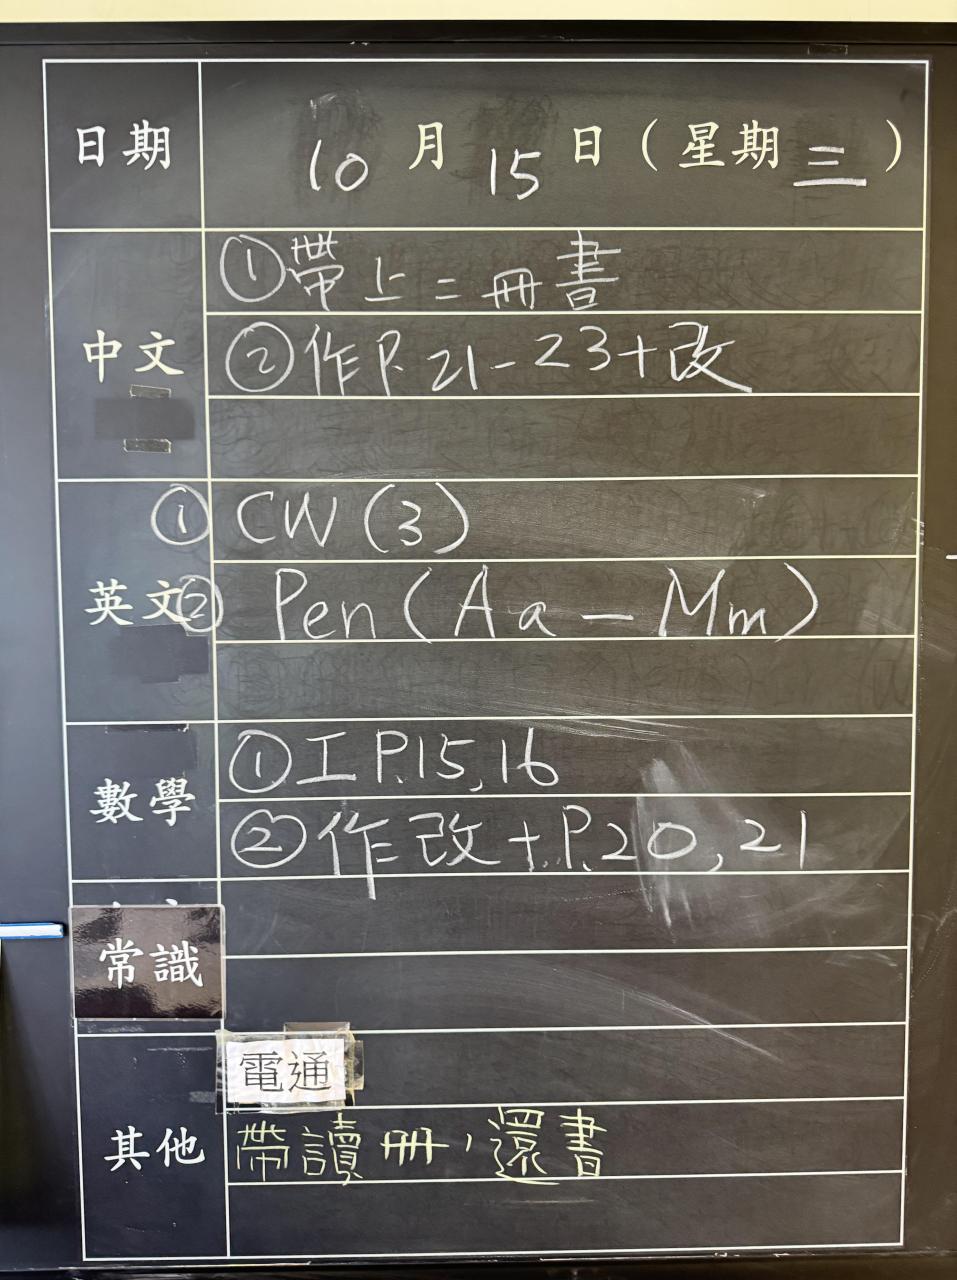 日期 10月15日(星期三)
中文
①帶上二冊書
②作P.21-23+改
英文
① CW(3)
② Pen(Aa-Mm)
數學
①工P.15,16
②作改+P.20,21
常識
其他
電通
帶讀冊,還書